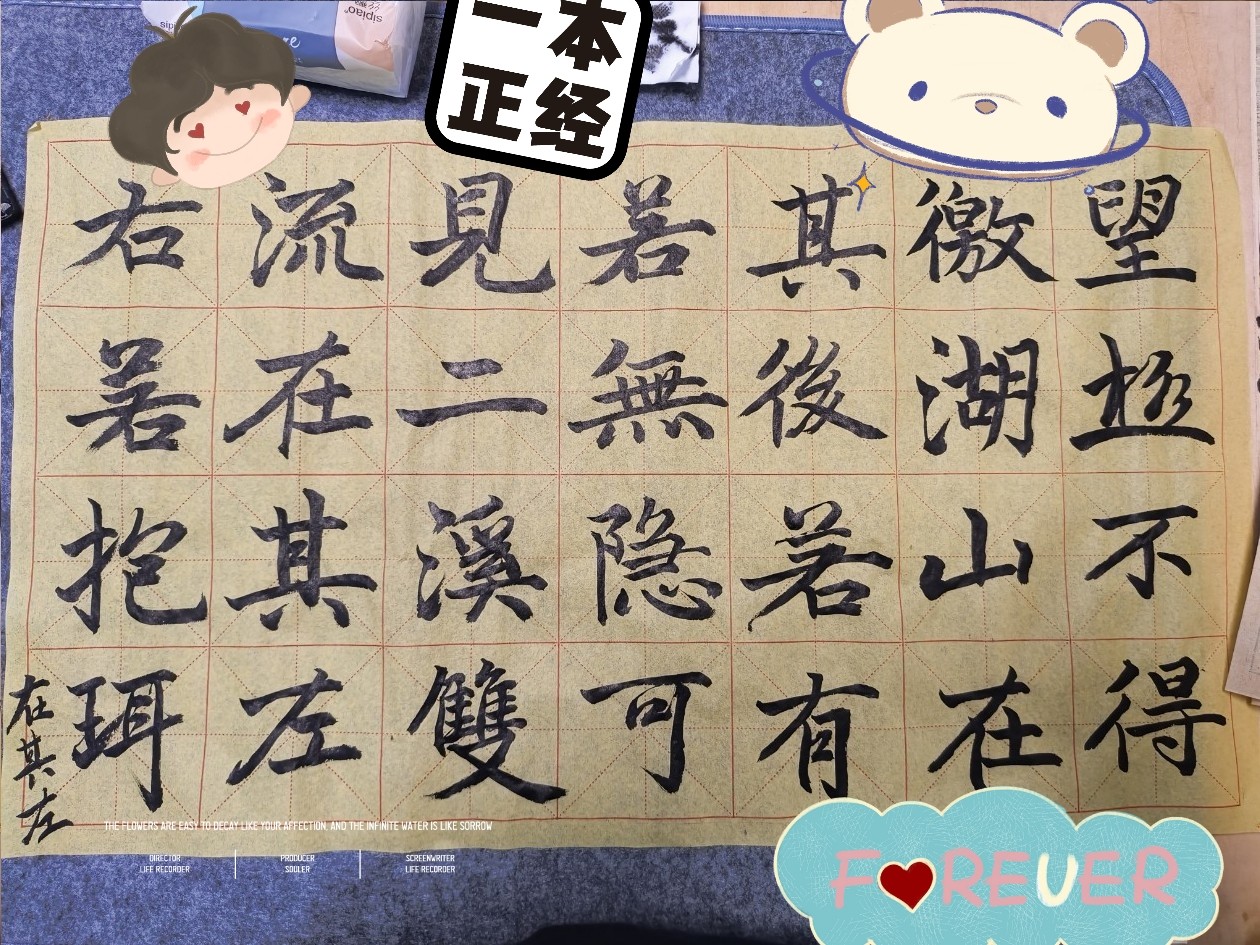 一本
正经
sipiao
望極不得
徼湖山在
其後若有
若無隐可
見二溪雙
流在其左
右若抱珥
在其左
THE FLOWERS ARE EASY TO DECAY LIKE YOUR AFFECTION, AND THE INFINITE WATER IS LIKE SORROW
DIRECTOR
LIFE RECORDER
PRODUCER
SOULER
SCREENWRITER
LIFE RECORDER
FOREVER